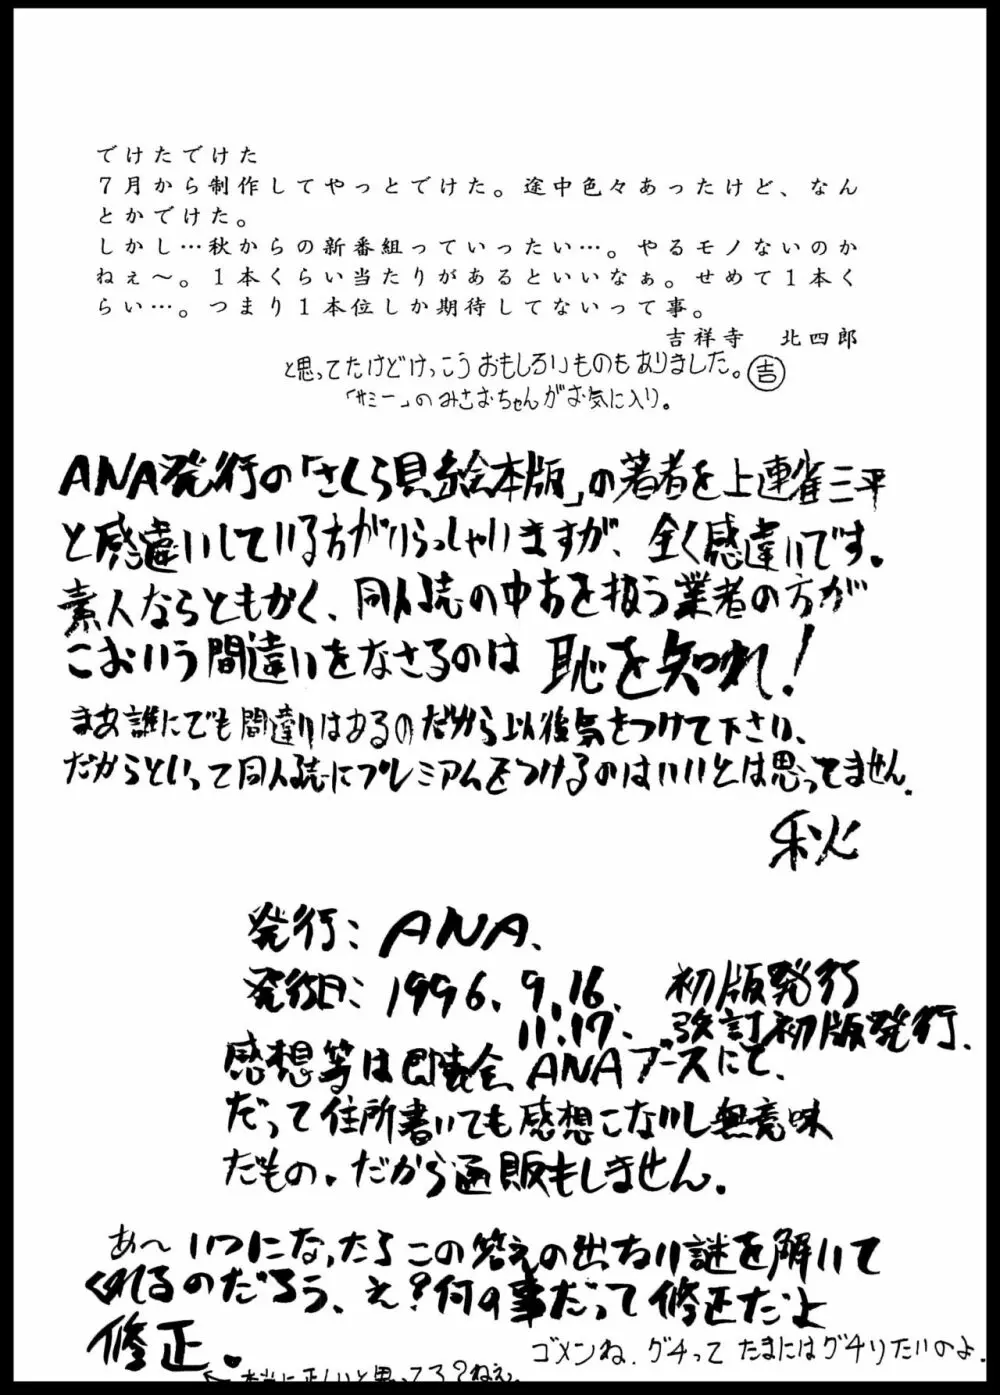 でけたでけた
７月から制作してやっとでけた。途中色々あったけど、なん
とかでけた。
しかし…秋からの新番組っていったい…。やるモノないのか
ねぇ～。１本くらい当たりがあるといいなぁ。せめて１本く
らい…。つまり１本位しか期待してないって事。
吉祥寺　北四郎
と思ってたけどけっこうおもしろいものもありました。吉
「サミー」のみさおちゃんがお気に入り。
ANA発行の「さくら貝絵本版」の著者を上連雀三平
と感違いしている方がいらっしゃいますが、全く感違いです。
素人ならともかく、同人誌の中古を扱う業者の方が
こおいう間違いをなさるのは恥を知れ！
まあ誰にでも間違いはあるのだから以後気をつけて下さい、
だからといって同人誌にプレミアムをつけるのはいいとは思ってません.
秋
発行：ANA.
発行日：1996.9.16. 初版発行
11.17. 改訂初版発行.
感想等は即売会ANAブースにて、
だって住所書いても感想こないし無意味
だもの。だから通販もしません。
あ〜いつになったらこの答えの出ない謎を解いて
くれるのだろう、え？何の事だって修正だよ
修正。
ゴメンね.グチって たまにはグチりたいのよ.
←本当に正しいと思ってる？ねぇ。